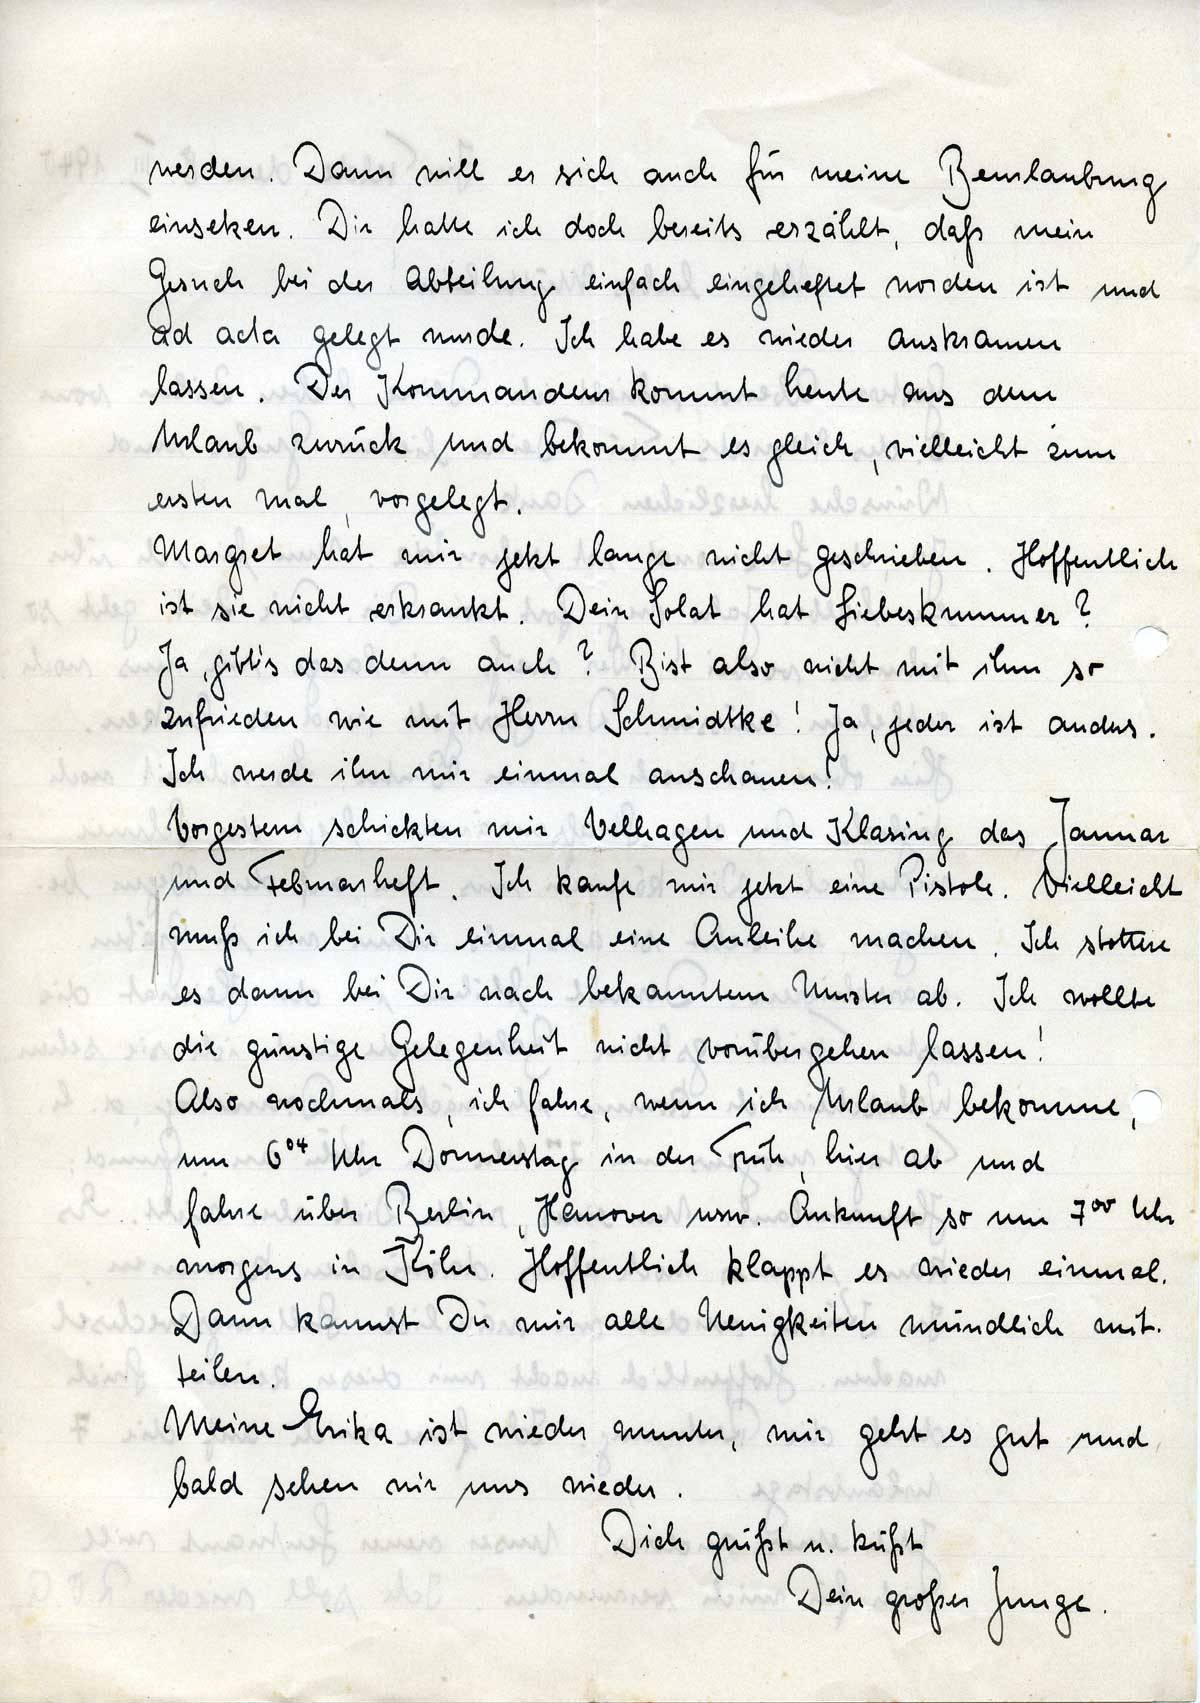 werden. Dann will er sich auch für meine Beurlaubung
einsetzen. Dir hatte ich doch bereits erzählt, daß mein
Gesuch bei der Abteilung einfach eingeheftet worden ist und
ad acta gelegt wurde. Ich habe es wieder auskramen
lassen. Der Kommandeur kommt heute aus dem
Urlaub zurück und bekommt es gleich, vielleicht zum
ersten mal, vorgelegt.
Margret hat mir jetzt lange nicht geschrieben. Hoffentlich
ist sie nicht erkrankt. Dein Solat hat Liebeskummer?
Ja, gibt's das denn auch? Bist also nicht mit ihm so
zufrieden wie mit Herrn Schmidtke! Ja, jeder ist anders.
Ich werde ihn mir einmal anschauen!
Vorgestern schickten mir Velhagen und Klasing das Januar
und Februarheft. Ich kaufe mir jetzt eine Pistole. Vielleicht
muß ich bei Dir einmal eine Anleihe machen. Ich stottere
es dann bei Dir nach bekanntem Muster ab. Ich wollte
die günstige Gelegenheit nicht vorübergehen lassen!
Also nochmals, ich fahre, wenn ich Urlaub bekomme,
um 6⁰⁴ Uhr Donnerstag in der Früh, hier ab und
fahre über Berlin, Hanover usw. Ankunft so um 7⁰⁰ Uhr
morgens in Köln. Hoffentlich klappt es wieder einmal.
Dann kannst Du mir alle Neuigkeiten mündlich mit-
teilen.
Meine Erika ist wieder munter, mir geht es gut und
bald sehen wir uns wieder.
Dich grüßt u. küßt
Dein großer Junge.